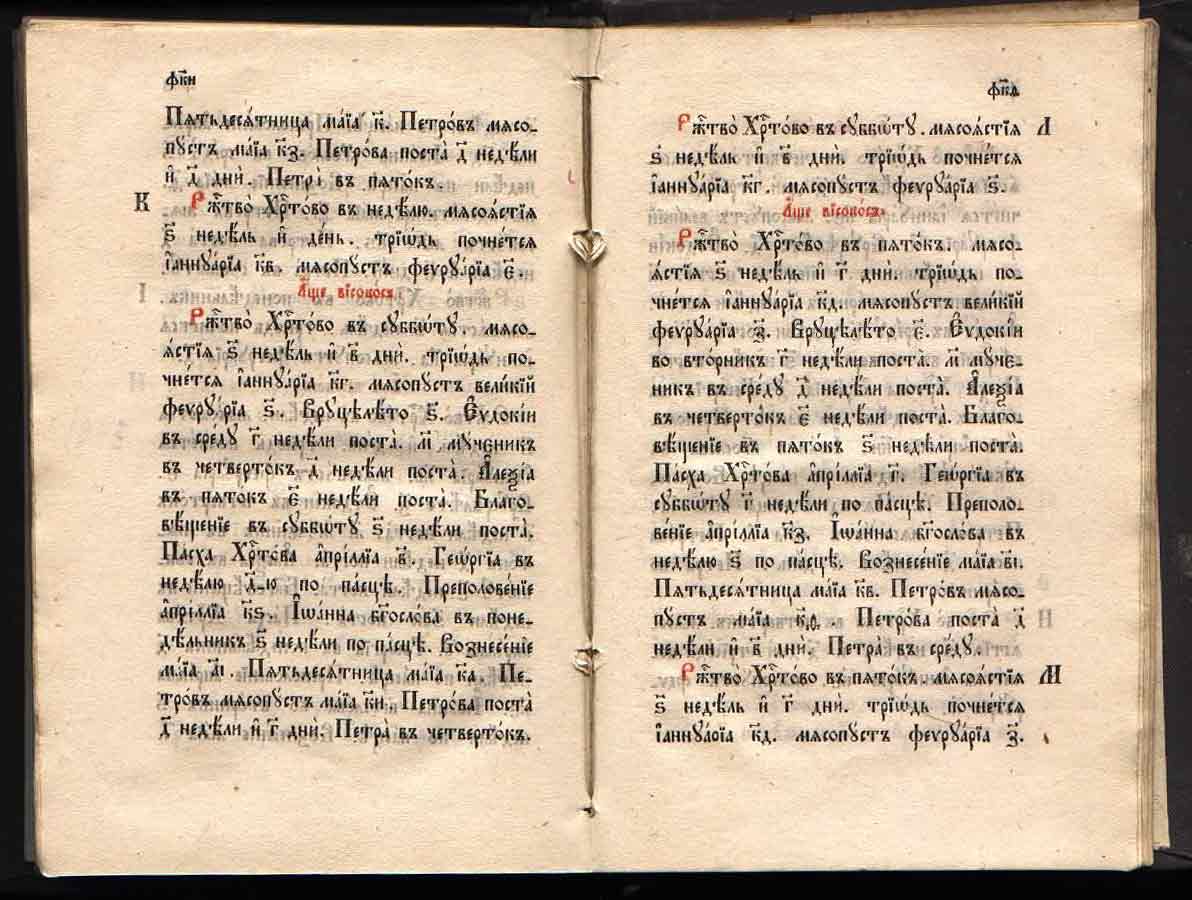 фк҃и
Пѧтьдесѧ́тница ма́їа к҃. Петро́въ мѧсо-
пꙋстъ ма́їа к҃з. Петро́ва поста̀ д҃ недѣ́ли
и҆ д҃ днѝ. Петра̀ въ пѧто́къ.
К Рж҃тво̀ Хр҃то́во въ недѣ́лю. мѧсоѧ́стїѧ
ѕ҃ недѣ́ль и҆ де́нь. трїѡ́дь почне́тсѧ
і҆аннꙋа́рїа к҃в. мѧсопꙋстъ феѵрꙋа́рїа є҃.
А҆́ще високо́съ.
Рж҃тво̀ Хр҃то́во въ сꙋббѡ́тꙋ. мѧсо-
ѧ́стїѧ ѕ҃ недѣ́ль и҆ в҃ днѝ. трїѡ́дь по-
чне́тсѧ і҆аннꙋа́рїа к҃г. мѧсопꙋстъ вели́кїй
феѵрꙋа́рїа ѕ҃. Врꙋцѣлѣ́то ѕ҃. Є҆ѵдокі́и
въ сре́дꙋ г҃ недѣ́ли поста̀. м҃ мꙋ́ченикъ
въ четверто́къ д҃ недѣ́ли поста̀. А҆леѯі́а
въ пѧто́къ є҃ недѣ́ли поста̀. Благо-
вѣ́щенїе въ сꙋббѡ́тꙋ ѕ҃ недѣ́ли поста̀.
Па́сха Хр҃то́ва а҆прі́ллїа в҃. Геѡ́ргїа въ
недѣ́лю д҃-ю по па́сцѣ. Преполове́нїе
а҆прі́ллїа к҃ѕ. І҆ѡа́нна бг҃осло́ва въ поне-
дѣ́льникъ ѕ҃ недѣ́ли по па́сцѣ. Вознесе́нїе
ма́їа а҃і. Пѧтьдесѧ́тница ма́їа к҃а. Пе-
тро́въ мѧсопꙋстъ ма́їа к҃и. Петро́ва поста̀
д҃ недѣ́ли и҆ г҃ днѝ. Петра̀ въ четверто́къ.
фк҃ѳ
Рж҃тво̀ Хр҃то́во въ сꙋббѡ́тꙋ. мѧсоѧ́стїѧ Л
ѕ҃ недѣ́ль и҆ в҃ днѝ. трїѡ́дь почне́тсѧ
і҆аннꙋа́рїа к҃г. мѧсопꙋстъ феѵрꙋа́рїа ѕ҃.
А҆́ще високо́съ.
Рж҃тво̀ Хр҃то́во въ пѧто́къ. мѧсо-
ѧ́стїѧ ѕ҃ недѣ́ль и҆ г҃ днѝ. трїѡ́дь по-
чне́тсѧ і҆аннꙋа́рїа к҃д. мѧсопꙋстъ вели́кїй
феѵрꙋа́рїа з҃. Врꙋцѣлѣ́то є҃. Є҆ѵдокі́и
во вто́рникъ г҃ недѣ́ли поста̀. м҃ мꙋ́че-
никъ въ сре́дꙋ д҃ недѣ́ли поста̀. А҆леѯі́а
въ четверто́къ є҃ недѣ́ли поста̀. Благо-
вѣ́щенїе въ пѧто́къ ѕ҃ недѣ́ли поста̀.
Па́сха Хр҃то́ва а҆прі́ллїа г҃. Геѡ́ргїа въ
сꙋббѡ́тꙋ г҃ недѣ́ли по па́сцѣ. Преполо-
ве́нїе а҆прі́ллїа к҃з. І҆ѡа́нна бг҃осло́ва въ
недѣ́лю ѕ҃ по па́сцѣ. Вознесе́нїе ма́їа в҃і.
Пѧтьдесѧ́тница ма́їа к҃в. Петро́въ мѧсо-
пꙋстъ ма́їа к҃ѳ. Петро́ва поста̀ д҃
недѣ́ли и҆ в҃ днѝ. Петра̀ въ сре́дꙋ.
Рж҃тво̀ Хр҃то́во въ пѧто́къ. мѧсоѧ́стїѧ М
ѕ҃ недѣ́ль и҆ г҃ днѝ. трїѡ́дь почне́тсѧ
і҆аннꙋа́рїа к҃д. мѧсопꙋстъ феѵрꙋа́рїа з҃.